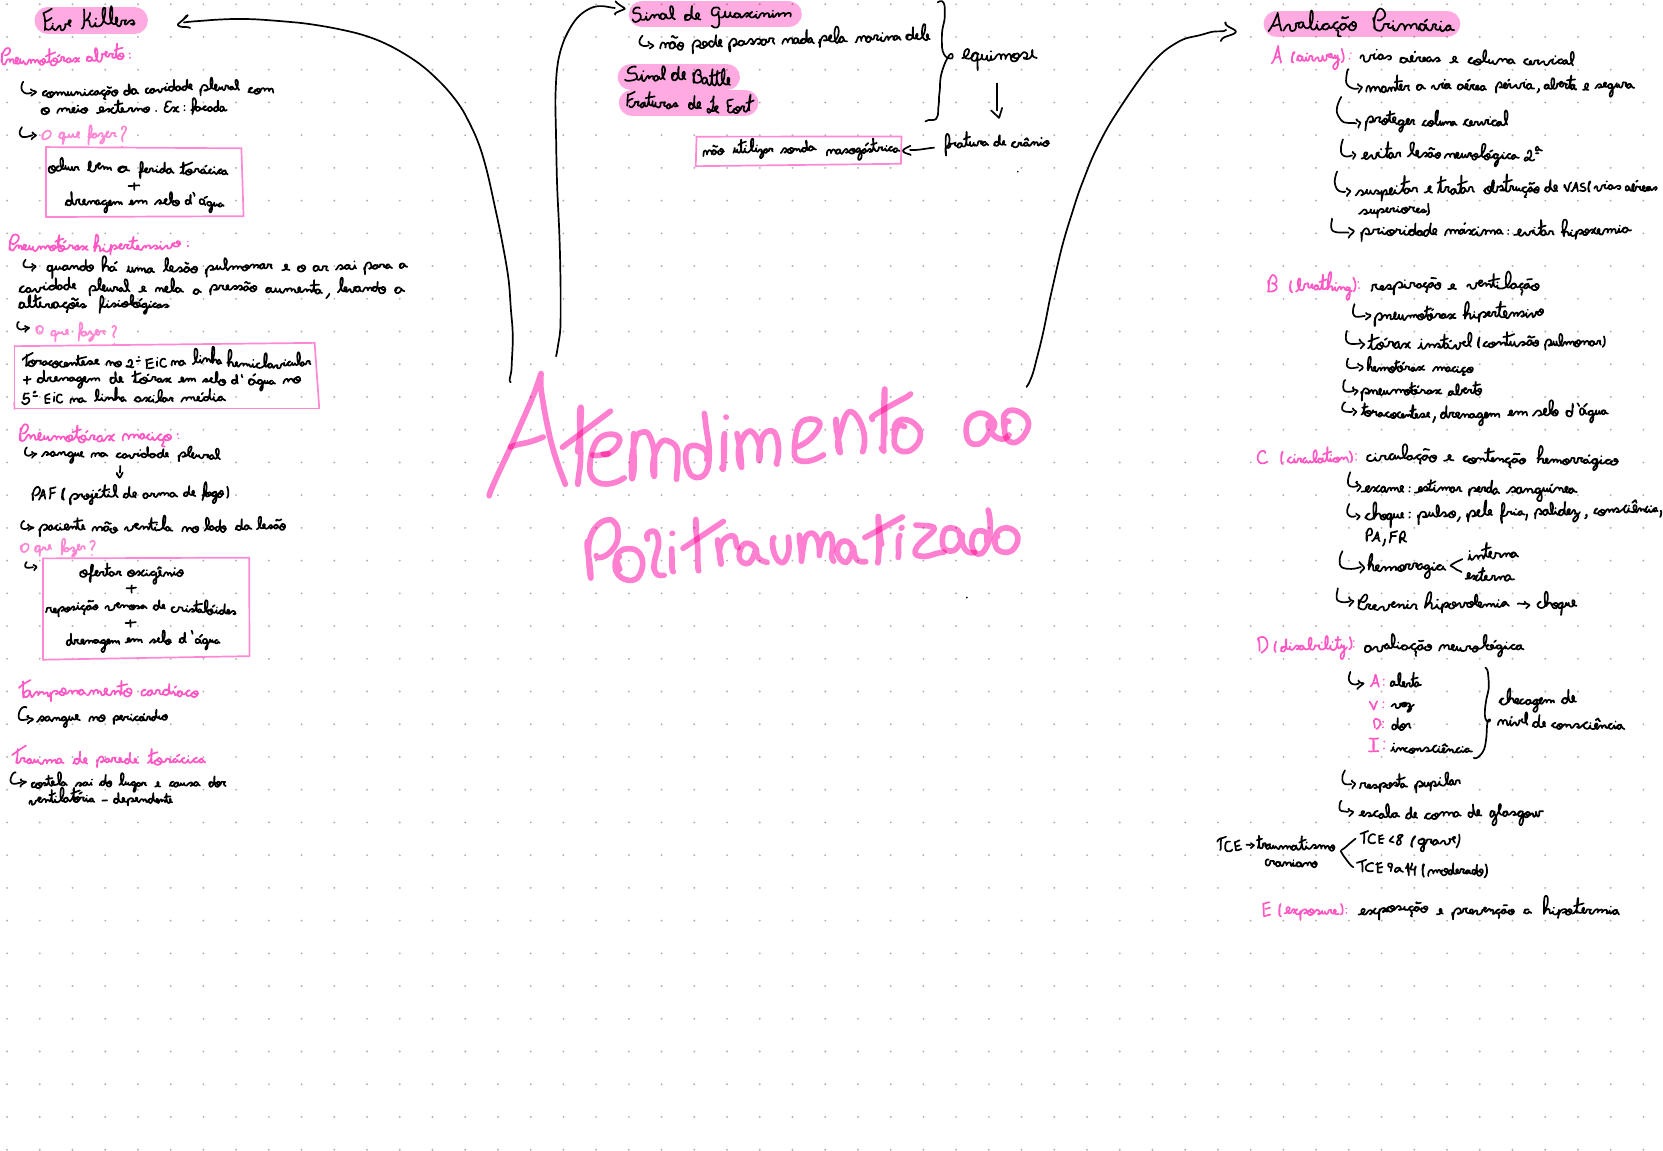 Five Killers
Pneumotórax aberto:
↳ comunicação da cavidade pleural com
o meio externo. Ex: facada
↳ O que fazer?
ocluir bem a ferida torácica
+
drenagem em selo d'água
Pneumotórax hipertensivo:
↳ quando há uma lesão pulmonar e o ar sai para a
cavidade pleural e nela a pressão aumenta, levando a
alterações fisiológicas
↳ O que fazer?
toracocentese no 2º EIC na linha hemiclavicular
+ drenagem de tórax em selo d'água no
5º EIC na linha axilar média
Pneumotórax maciço:
↳ sangue na cavidade pleural
↓
PAF (projétil de arma de fogo)
↳ paciente não ventila no lado da lesão
O que fazer?
↳
ofertar oxigênio
+
reposição venosa de cristalóides
+
drenagem em selo d'água
Tamponamento cardíaco
↳ sangue no pericárdio
Trauma de parede torácica
↳ costela sai do lugar e causa dor
ventilatória - dependente
Sinal de Guaxinim
↳ não pode passar nada pela narina dele
Sinal de Battle
Fraturas de Le Fort
equimose
↓
fratura de crânio
não utilizar sonda nasogástrica
Atendimento ao
Politraumatizado
Avaliação Primária
A (airway): vias aéreas e coluna cervical
↳ manter a via aérea pérvia, aberta e segura
↳ proteger coluna cervical
↳ evitar lesão neurológica 2ª
↳ suspeitar e tratar obstrução de VAS (vias aéreas
superiores)
↳ prioridade máxima: evitar hipoxemia
B (breathing): respiração e ventilação
↳ pneumotórax hipertensivo
↳ tórax instável (contusão pulmonar)
↳ hemotórax maciço
↳ pneumotórax aberto
↳ toracocentese, drenagem em selo d'água
C (circulation): circulação e contenção hemorrágica
↳ exame: estimar perda sanguínea
↳ choque: pulso, pele fria, palidez, consciência,
PA, FR
↳ hemorragia < interna
externa
↳ Prevenir hipovolemia → choque
D (disability): avaliação neurológica
↳ A: alerta
V: voz
D: dor
I: inconsciência
checagem de
nível de consciência
↳ resposta pupilar
↳ escala de coma de glasgow
TCE → traumatismo
craniano
TCE <8 (grave)
TCE 9 a 14 (moderado)
E (exposure): exposição e prevenção a hipotermia